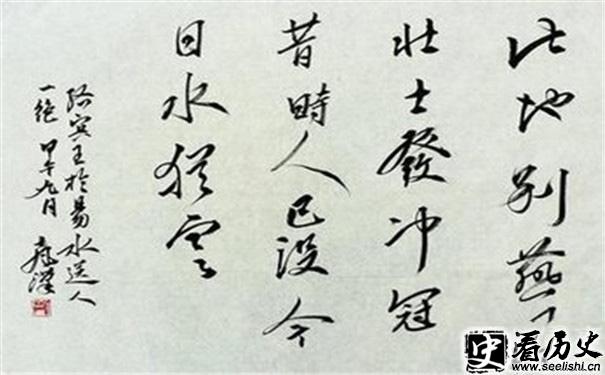 此地别燕
壮士發冲冠
昔時人已没今
日水犹寒
骆宾王於易水送人
一绝 甲午九月
史 看历史
www.seelishi.cn